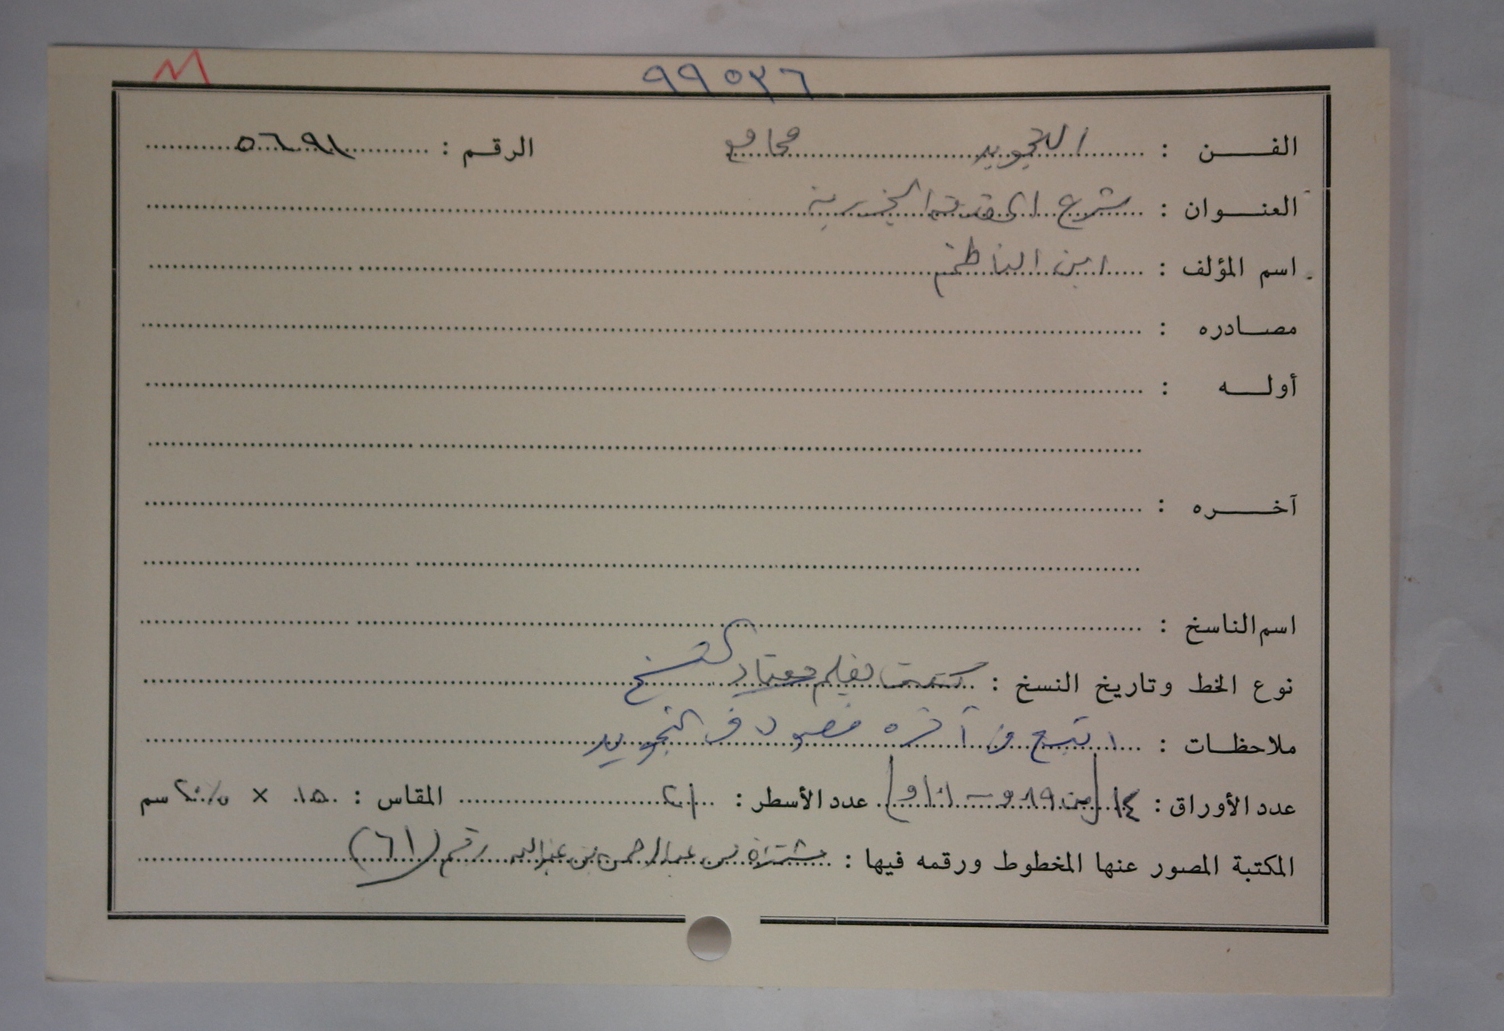 M
٩٩٥٣٦
الفن : التجويد مجاميع الرقم : ٥٦٩١
العنوان : شرح المقدمة الجزرية
اسم المؤلف : ابن الناظم
مصادره :
أوله :
آخره :
اسم الناسخ :
نوع الخط وتاريخ النسخ : كتبت بقلم معتاد
ملاحظات : ١ تبع من آخره فصول في التجويد
عدد الأوراق : ١٤ عدد الأسطر : ٢١ المقاس : ١٥ × سم
المكتبة المصور عنها المخطوط ورقمه فيها : مشتراه من عبدالرحمن بن عبدالله رقم (٦١)